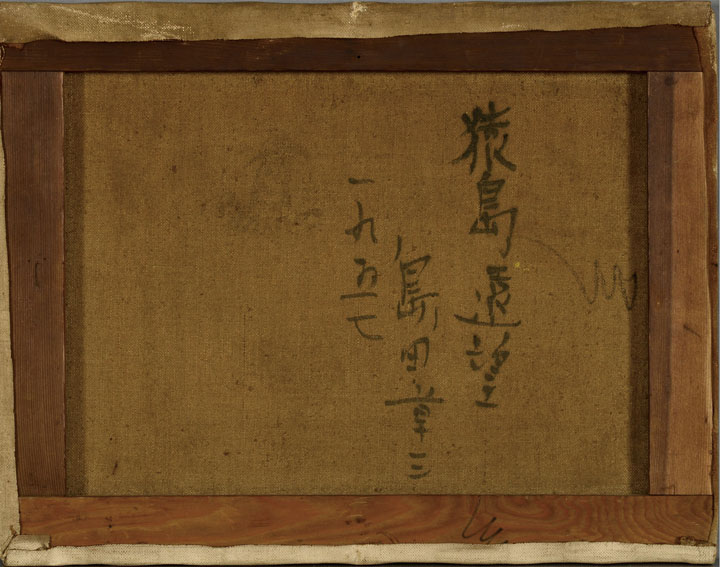 猿島遠望
島田章三
一九五七